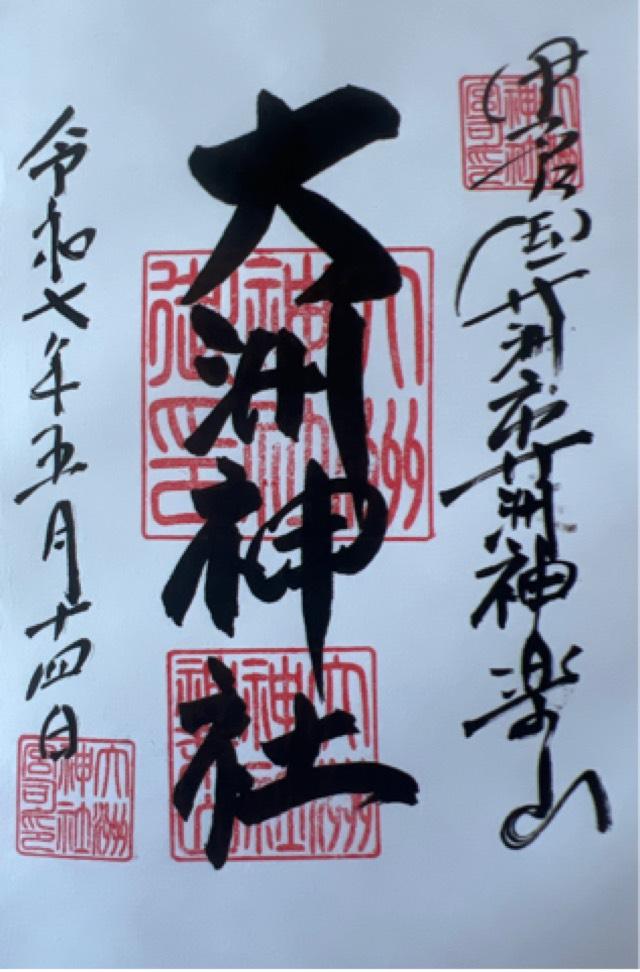 伊豫国大洲市大洲神楽山
大洲神社
令和七年五月十四日
大洲神社宮司印
大洲神社御印
大洲神社宮司印